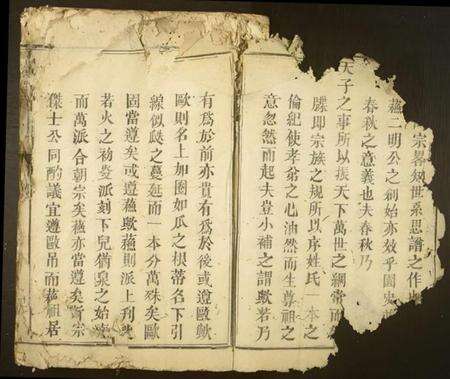 宗畧叙世系思譜之作
蘓二明公之朔始亦效乎國史
春秋之意義也夫春秋乃
天子之事所以振天下萬世之綱常而
牒即宗族之規所以序姓氏一本之
倫紀使孝翁之心油然而生尊祖之
意忽然而起夫豈小補之謂歟若乃
有爲於前亦貴有爲於後或遵歐歟
歐則名上加圈如瓜之根蒂名下引
線似瓞之蔓延而一本分萬殊矣歐
固當遵矣或遵蘓歟蘓則派上刋
若火之初發派刻下兒猶泉之始
而萬派合朝宗矣蘓亦當遵矣宗
傑士公同酌議宜遵歐吊而蘓祖居